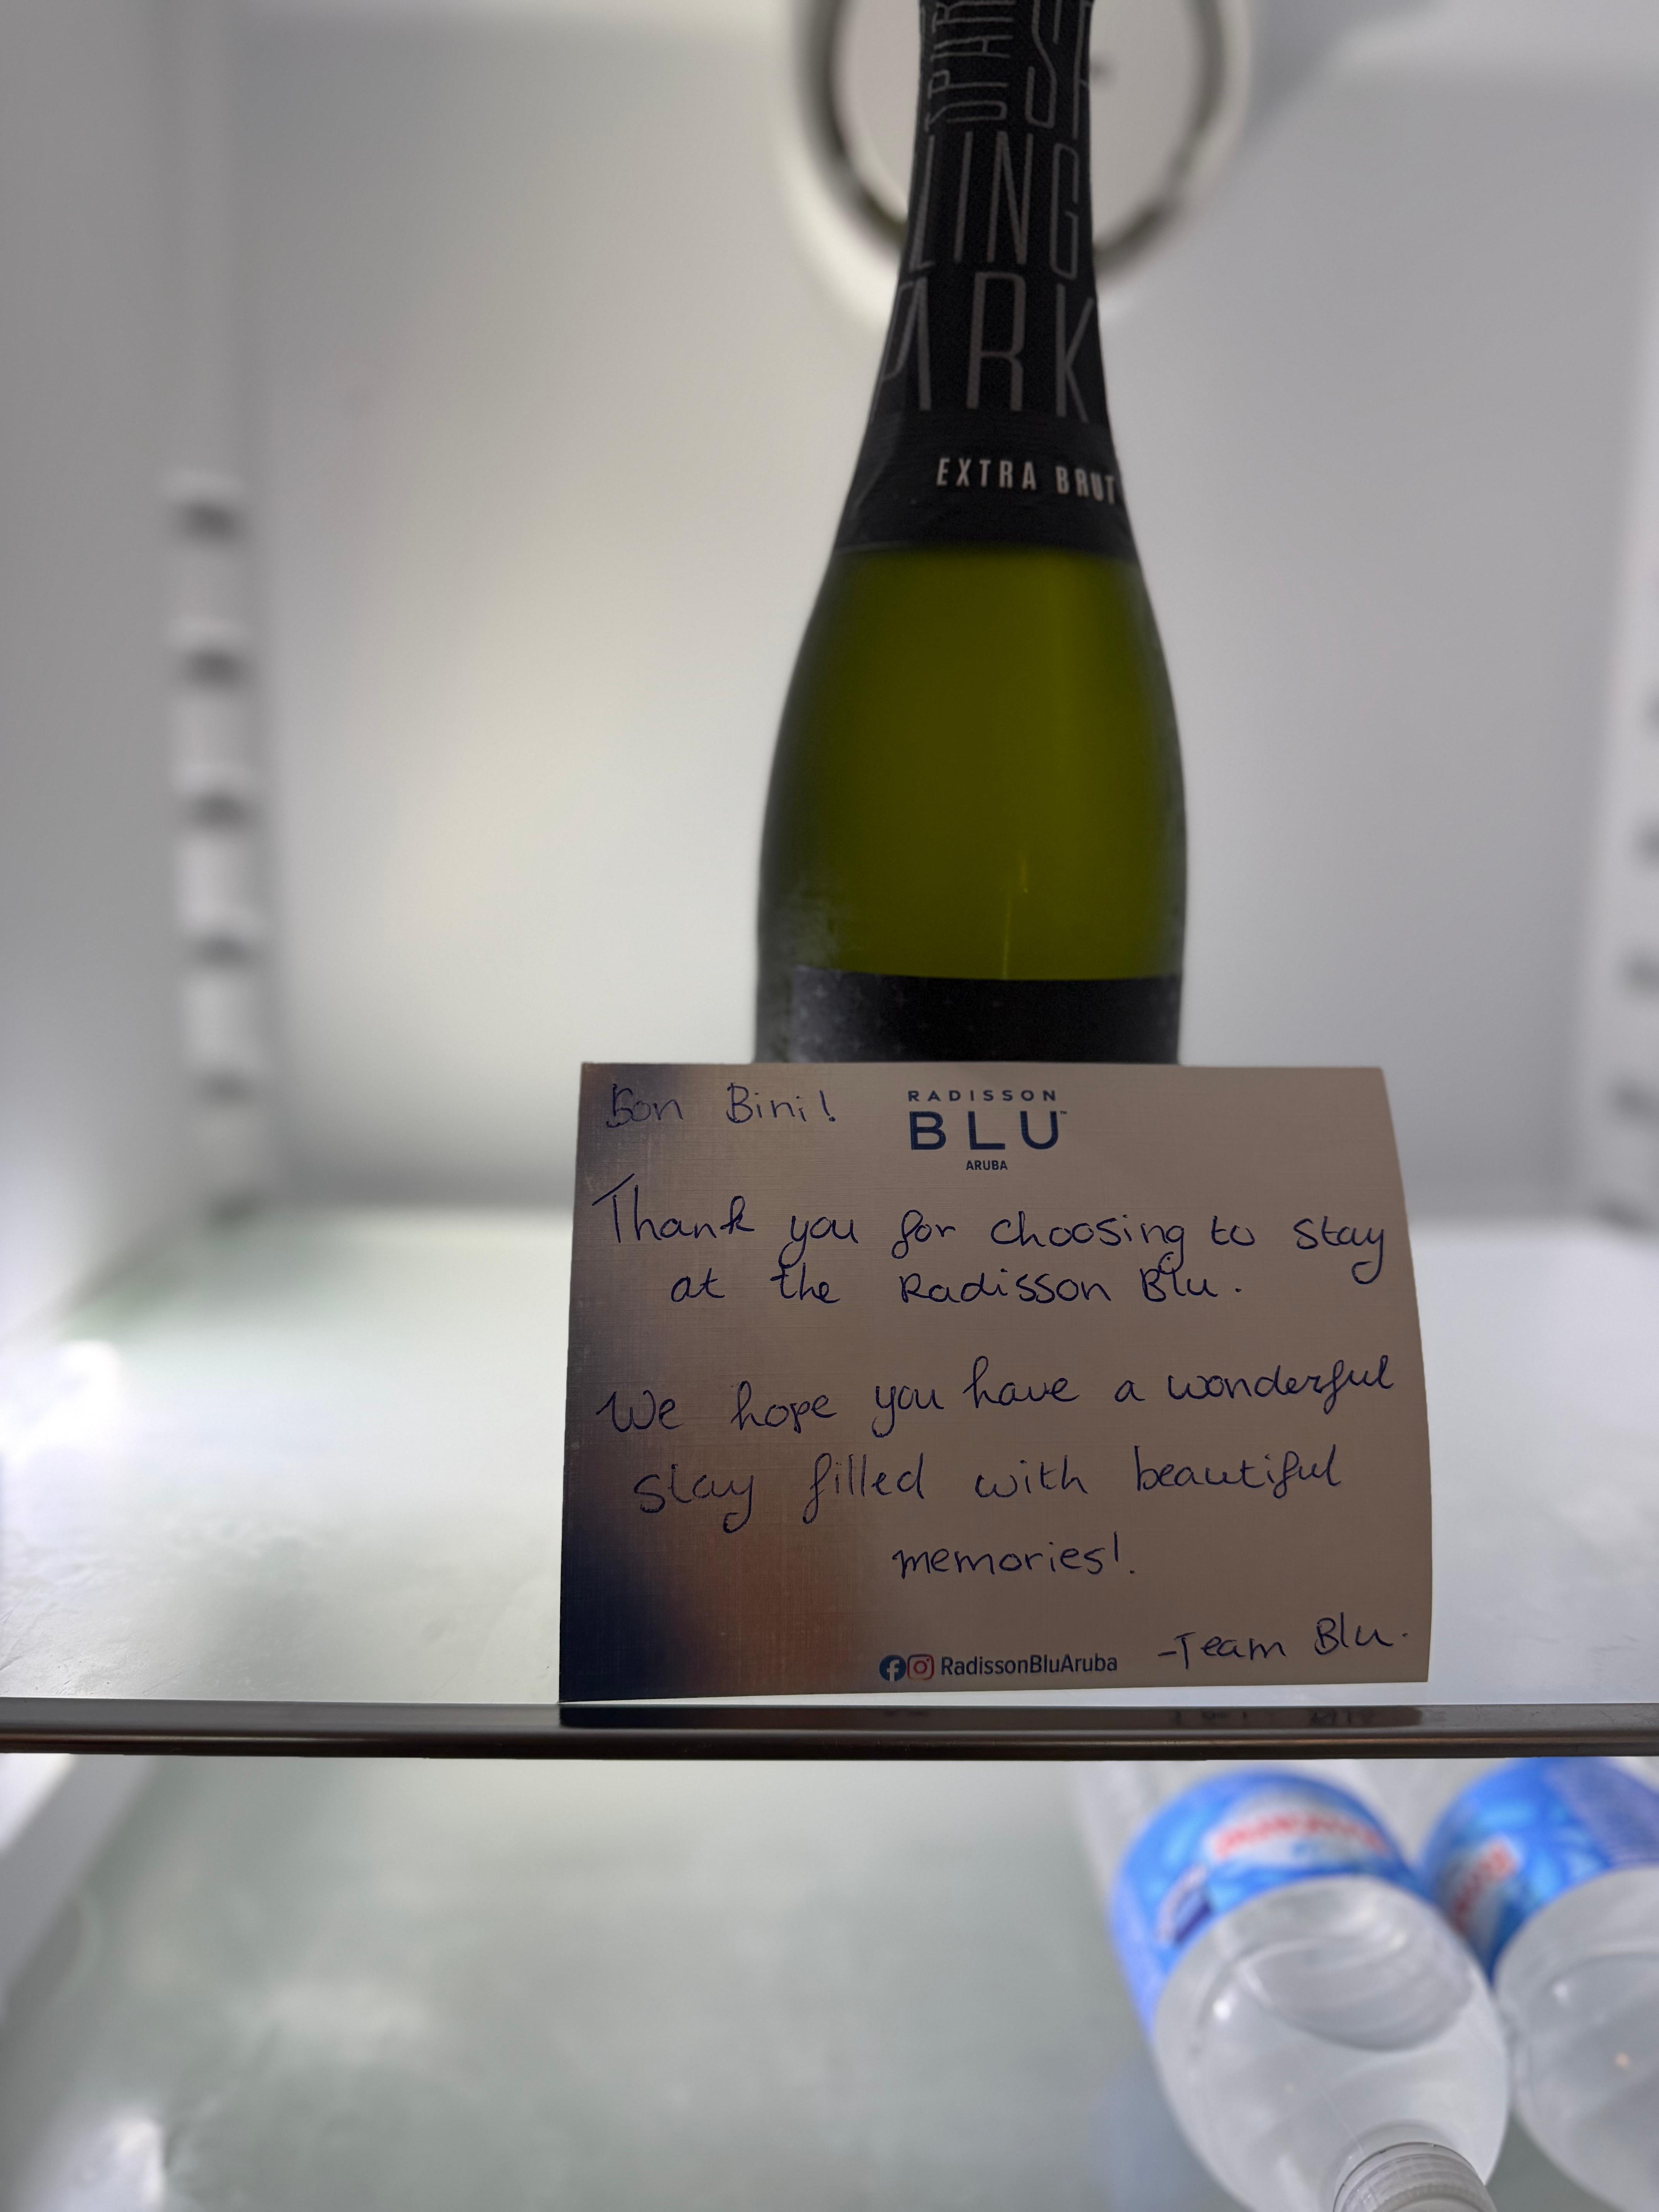 LING
ARK
EXTRA BRUT
Bon Bini!
RADISSON
BLU™
ARUBA
Thank you for choosing to stay
at the Radisson Blu.
We hope you have a wonderful
stay filled with beautiful
memories!
-Team Blu.
RadissonBluAruba